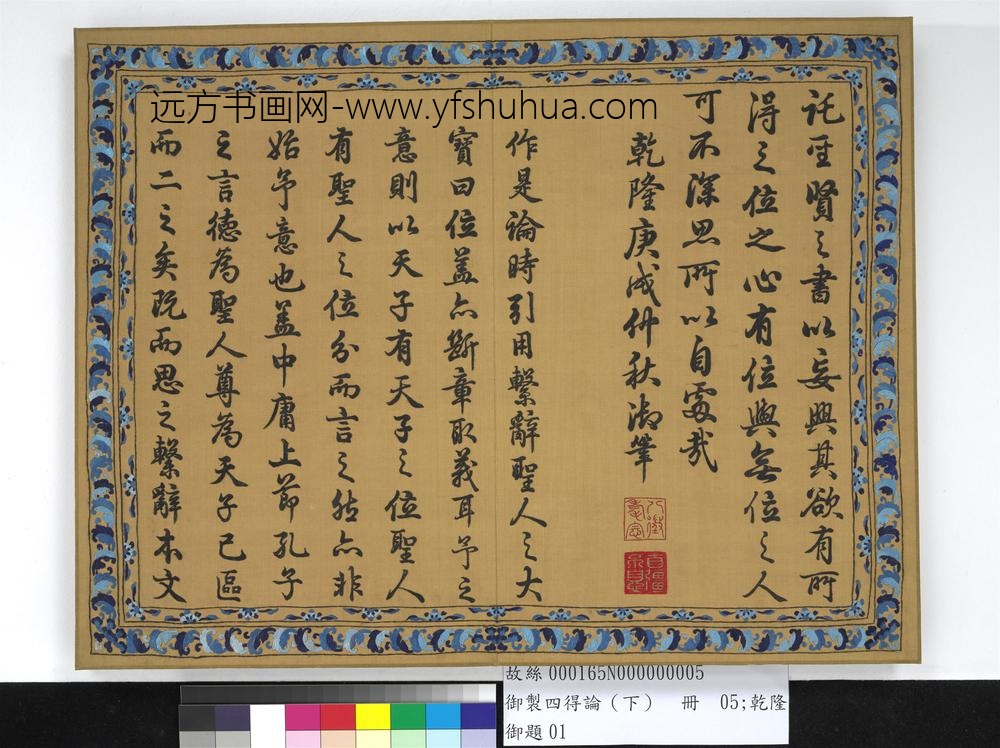 远方书画网-www.yfshuhua.com
託聖賢之書以妄興其欲有所
得之位之心有位與無位之人
可不深思所以自處哉
乾隆庚戌仲秋御筆
八徵耄念
自彊不息
作是論時引用繫辭聖人之大
寶曰位蓋亦斷章取義耳予之
意則以天子有天子之位聖人
有聖人之位分而言之然亦非
始予意也蓋中庸上節孔子
之言德為聖人尊為天子已區
而二之矣既而思之繫辭本文
故絲000165N000000005
御製四得論（下） 冊 05;乾隆
御題01